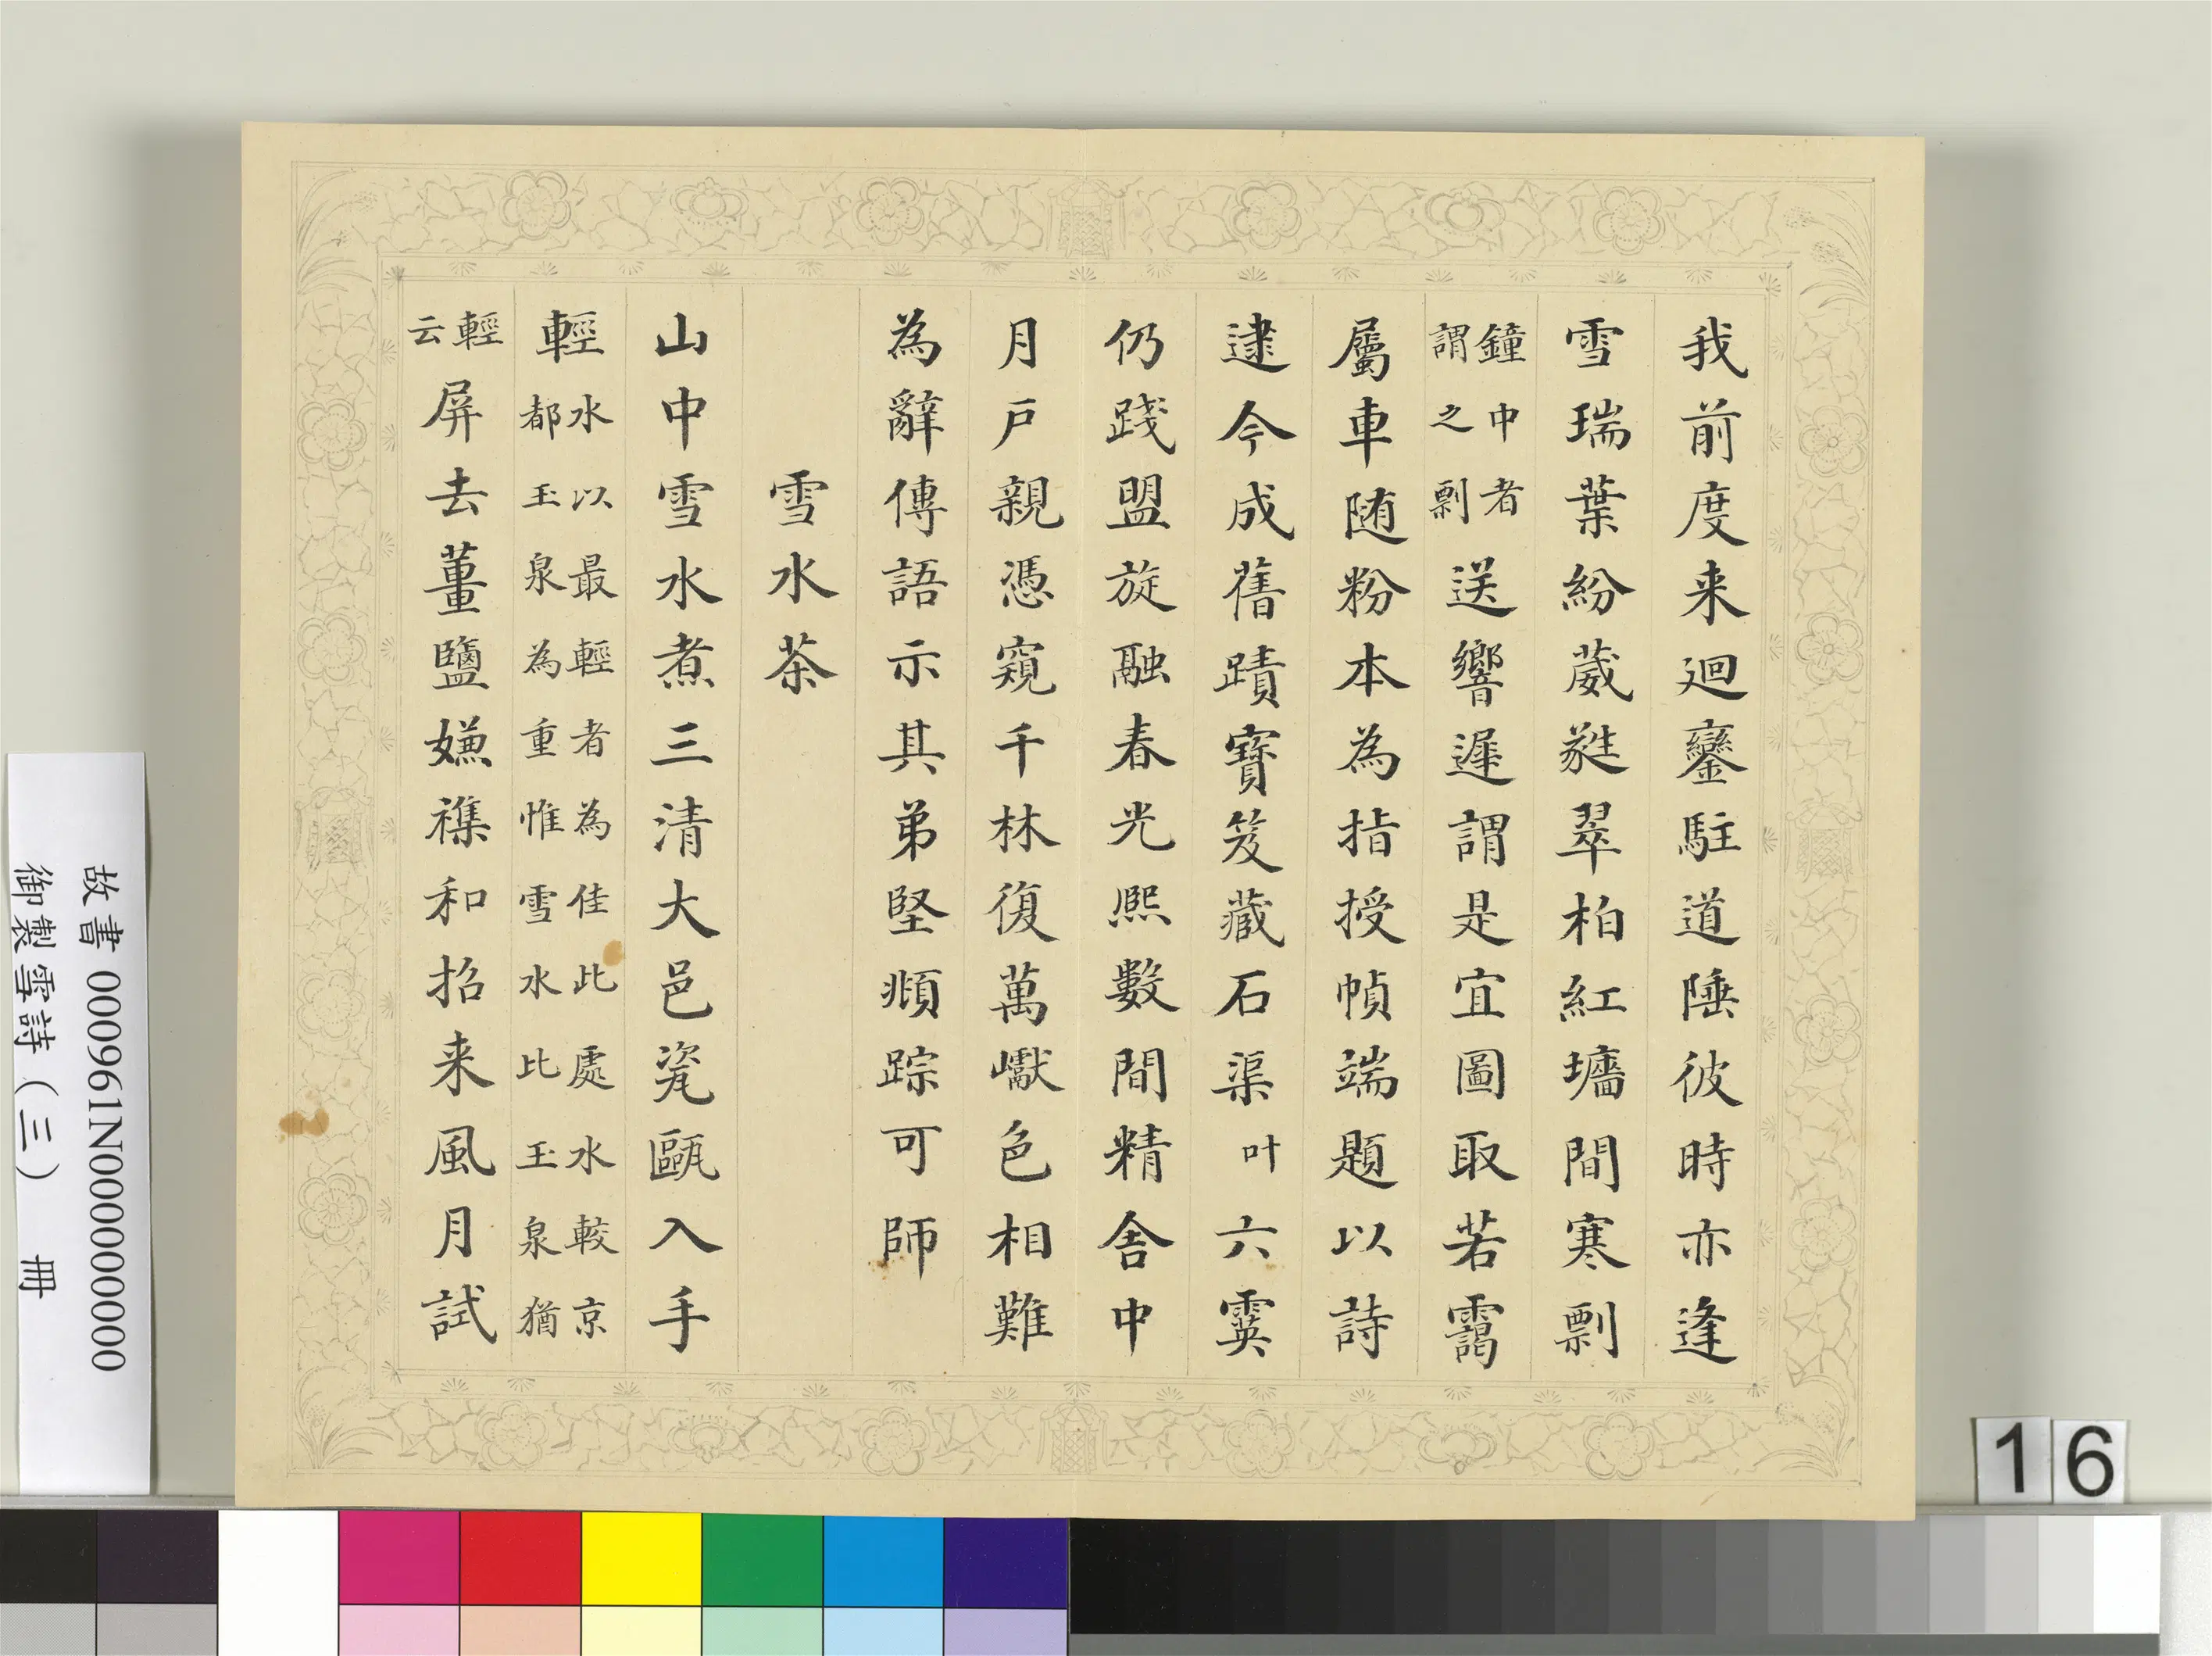 我前度来迴鑾駐道陲彼時亦逢
雪瑞葉紛葳蕤翠柏紅墻間寒剽
鐘中者
謂之剽
送響遲謂是宜圖取若靄
屬車随粉本為指授幀端題以詩
逮今成舊蹟寶笈藏石渠叶六霙
仍踐盟旋融春光熙數間精舍中
月戶親憑窺千林復萬巘色相難
為辭傳語示其弟堅順踪可師
雪水茶
山中雪水煮三清大邑瓷甌入手
輕
水以最輕者為佳此處水較京
都玉泉為重惟雪水比玉泉猶
輕
云
屏去薑鹽嫌襍和招来風月試
故書 000961N000000000
御製雪詩(三) 冊
16